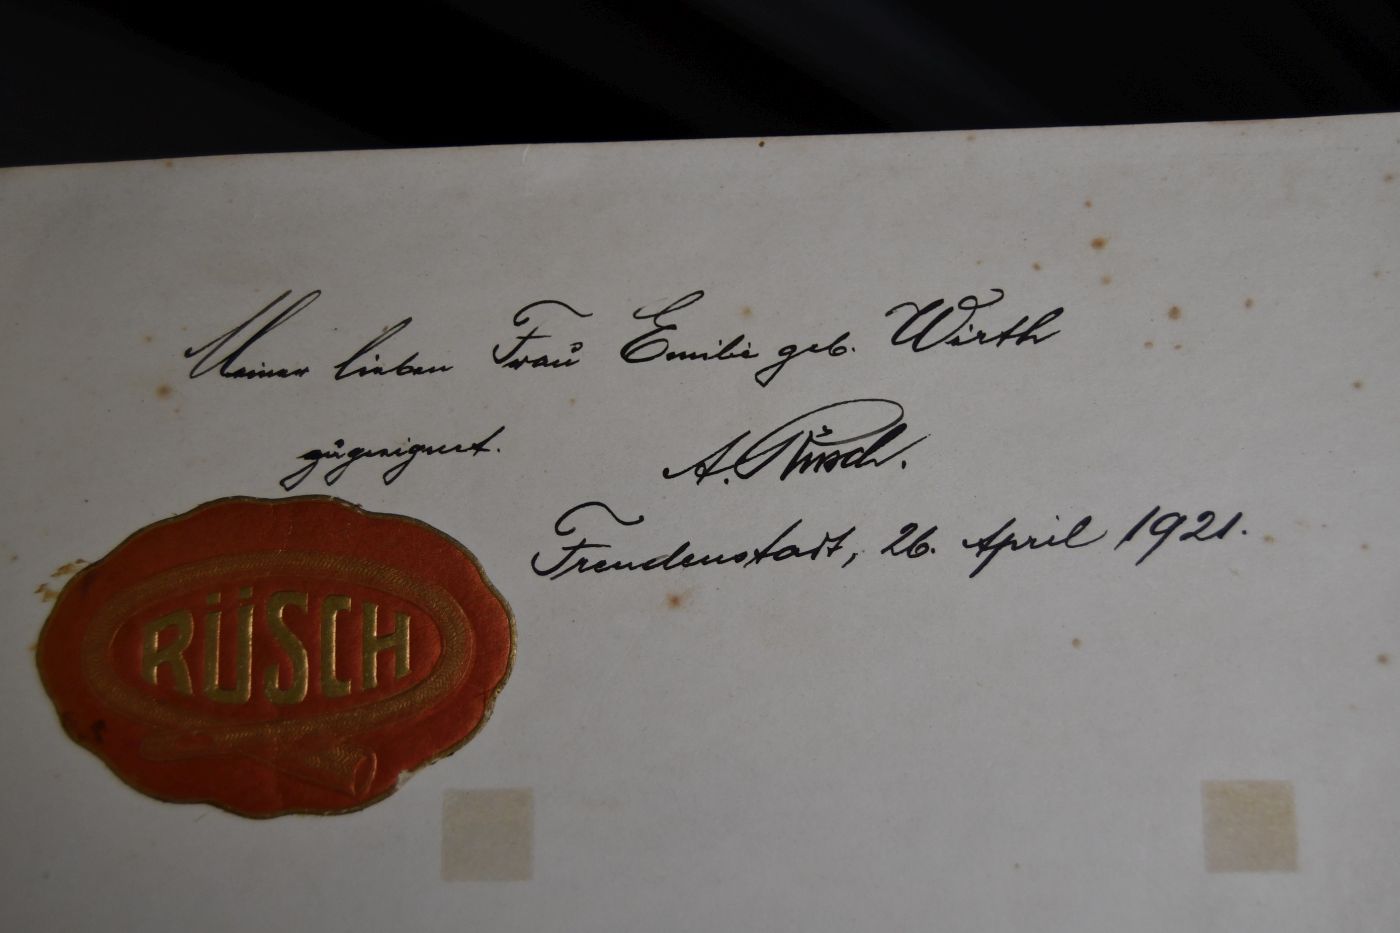 Meiner lieben Frau Emilie geb. Wirth
zugeeignet.
A. Rüsch.
Freudenstadt, 26. April 1921.
RÜSCH